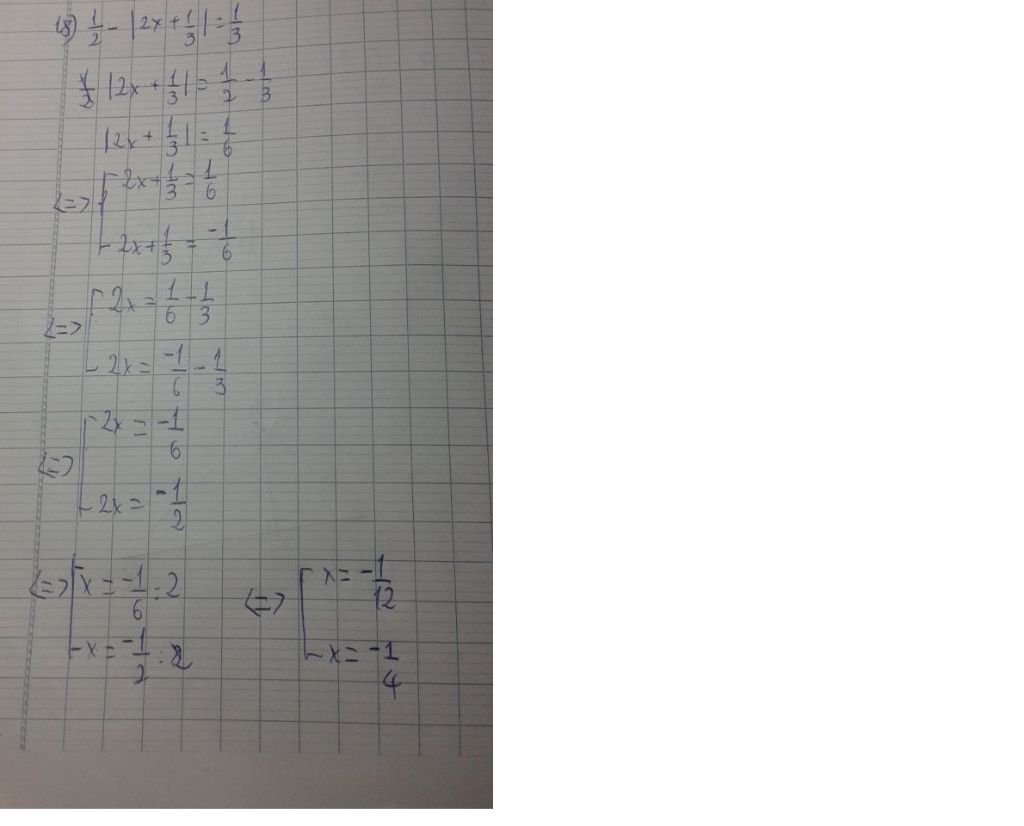 18) 1/2 - |2x + 1/3| = 1/3
|2x + 1/3| = 1/2 - 1/3
|2x + 1/3| = 1/6
<=> [ 2x + 1/3 = 1/6
2x + 1/3 = -1/6
<=> [ 2x = 1/6 - 1/3
2x = -1/6 - 1/3
<=> [ 2x = -1/6
2x = -1/2
<=> [ x = -1/6 : 2
x = -1/2 : 2
<=> [ x = -1/12
x = -1/4